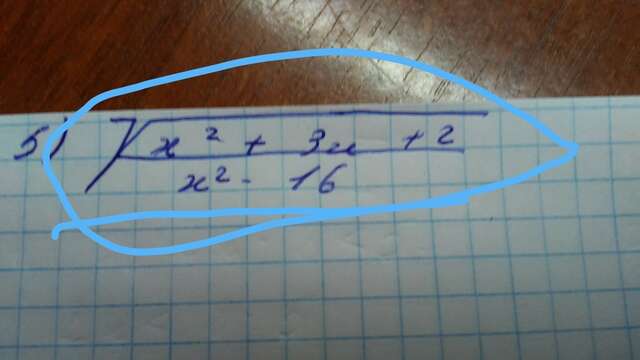 5) √(x² + 3x + 2
x² - 16)